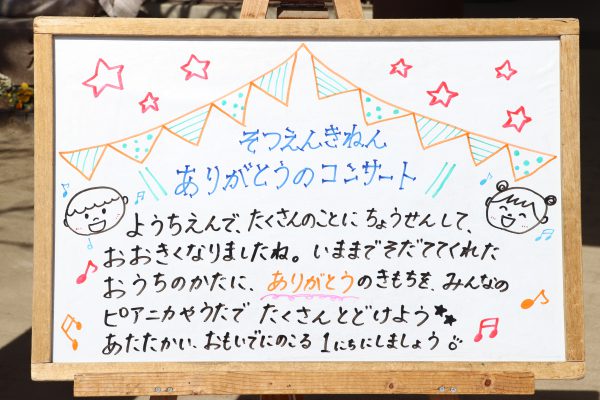 そつえんきねん
ありがとうのコンサート
ようちえんで、たくさんのことにちょうせんして、
おおきくなりましたね。いままでそだててくれた
おうちのかたに、ありがとうのきもちを、みんなの
ピアニカやうたでたくさんとどけよう
あたたかい、おもいでにのこる1にちにしましょう